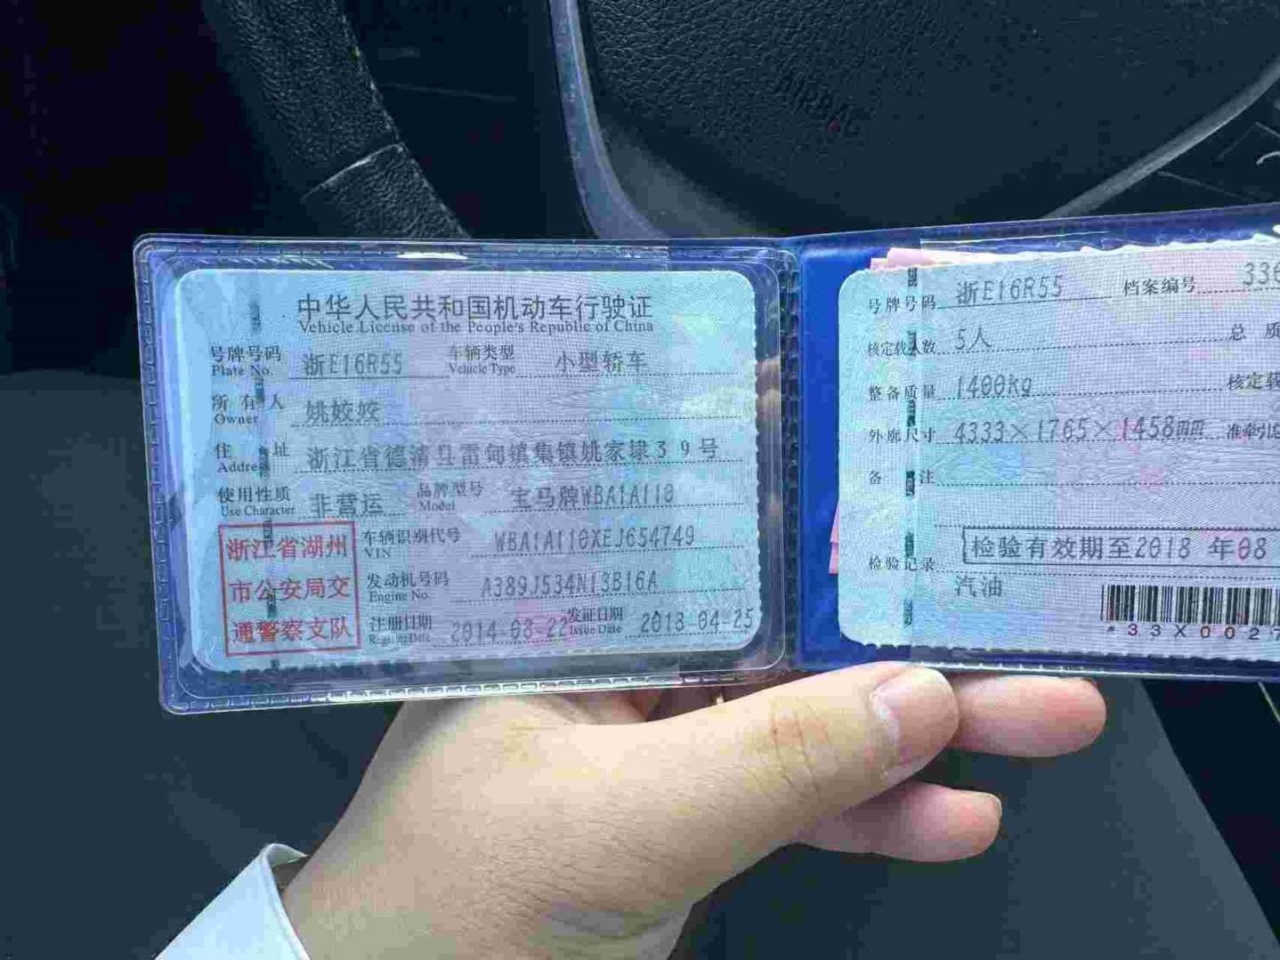 AIRBAG
中华人民共和国机动车行驶证
Vehicle License of the People's Republic of China
号牌号码 浙E16R55 车辆类型 小型轿车
Plate No. Vehicle Type
所有人 姚姣姣
Owner
住址 浙江省德清县雷甸镇集镇姚家埭39号
Address
使用性质 非营运 品牌型号 宝马牌WBA1A110
Use Character Model
浙江省湖州
市公安局交
通警察支队
车辆识别代号 WBA1A110XEJ654749
VIN
发动机号码 A389J534N13B16A
Engine No.
注册日期 2014-03-22 发证日期 2018-04-25
Register Date Issue Date
号牌号码 浙E16R55 档案编号 336
核定载人数 5人 总质
整备质量 1400kg 核定载
外廓尺寸 4333×1765×1458mm 准牵引
备注
检验记录 检验有效期至2018年08
汽油
*33X002